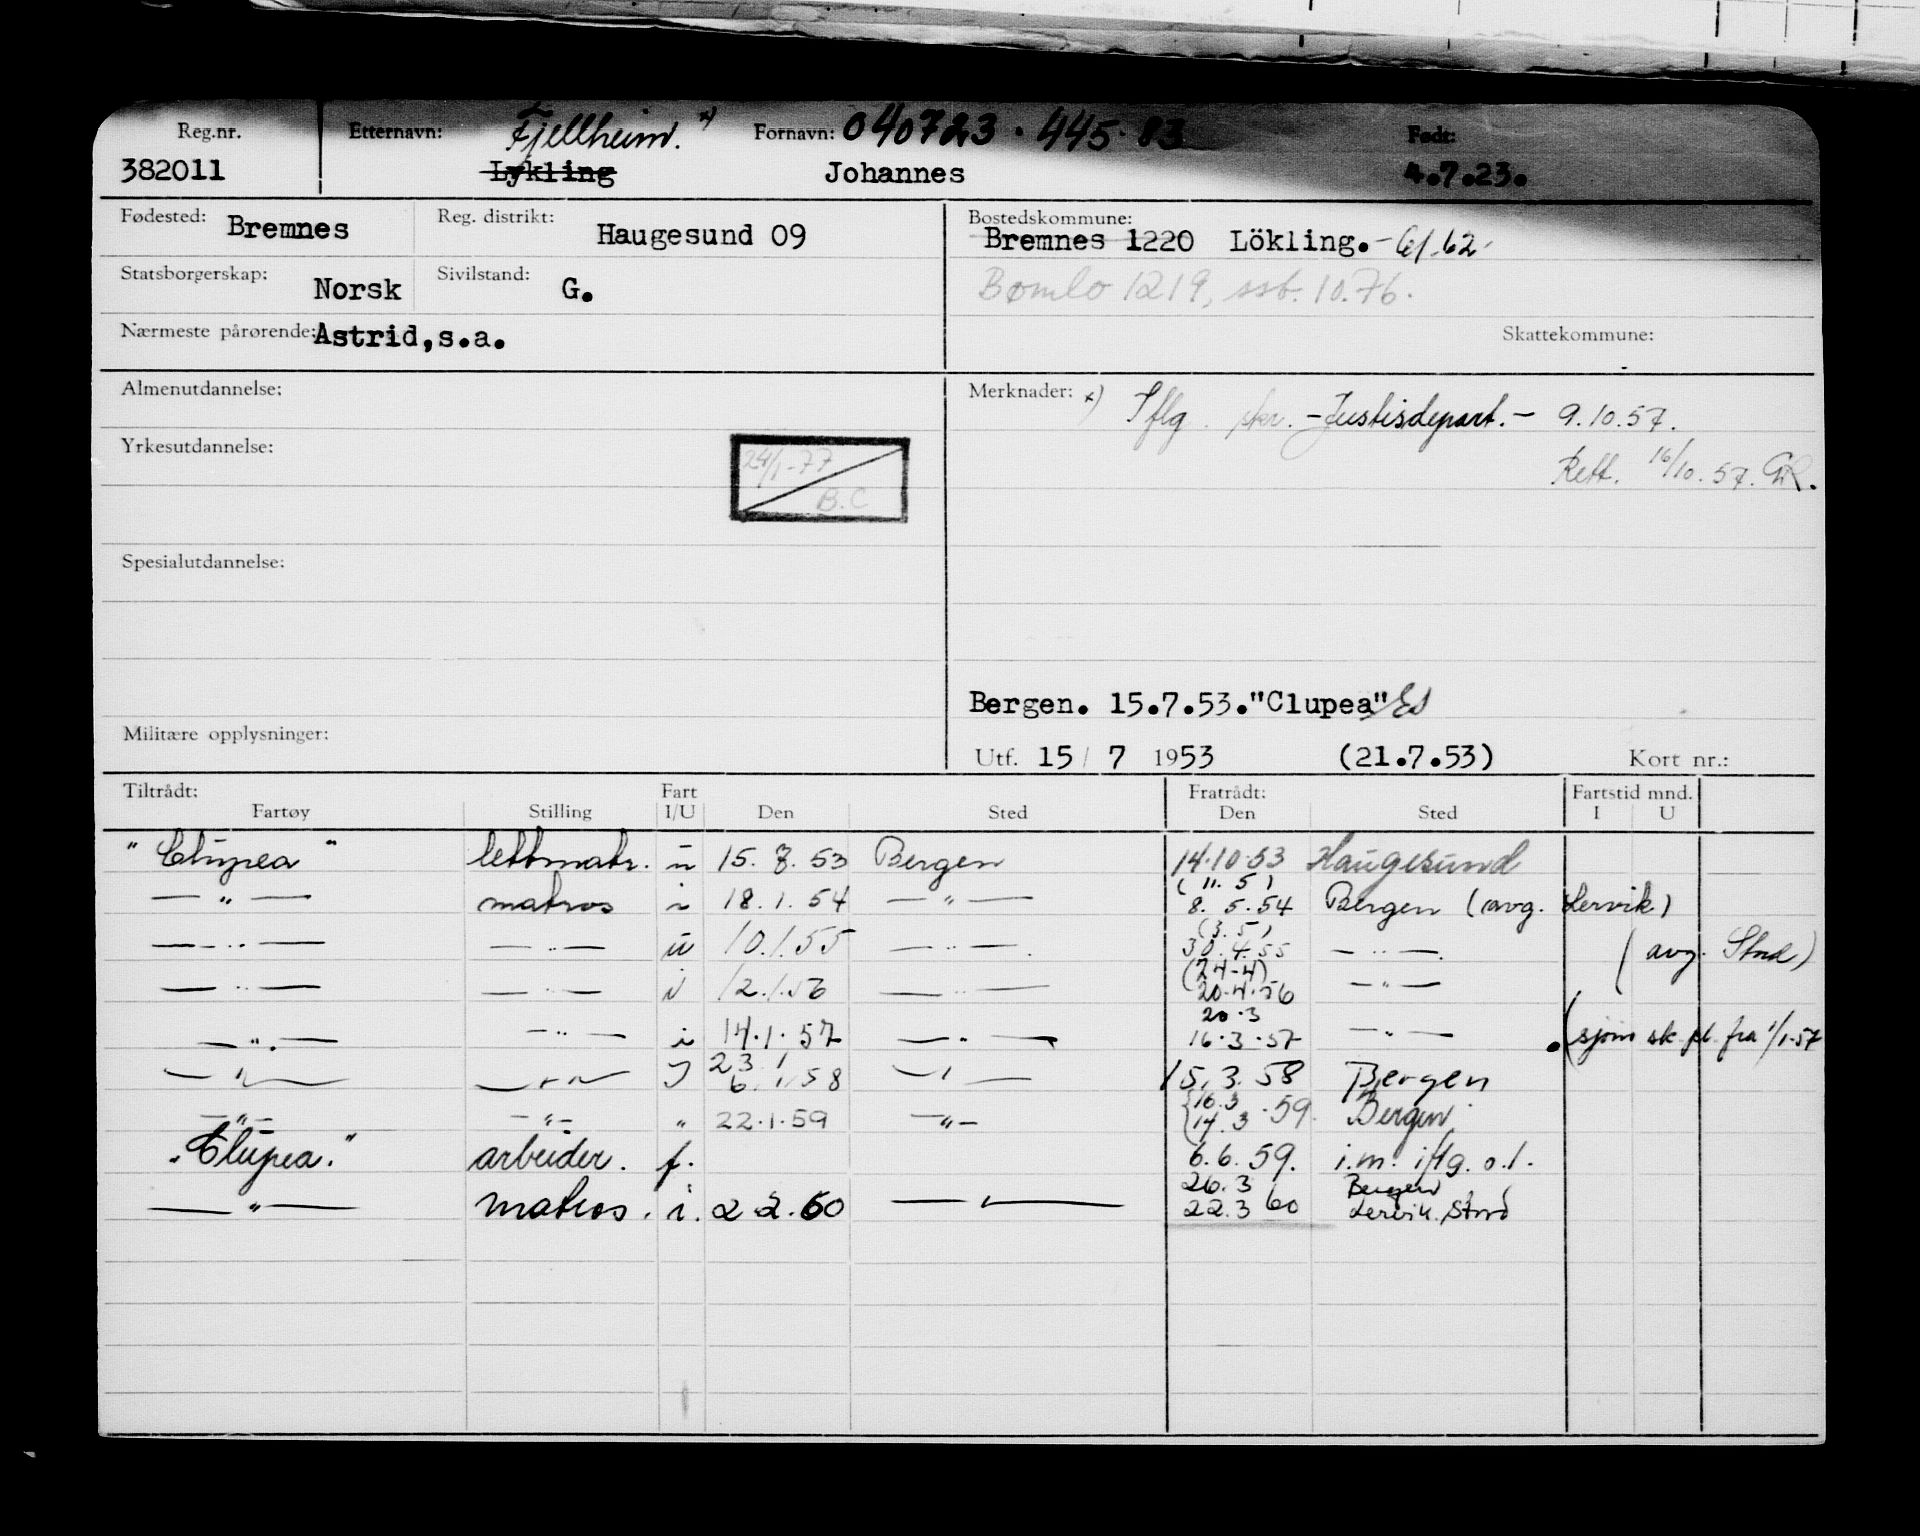 Reg.nr. Etternavn: Fjellheim. x) Fornavn: 040723 · 445 · 83 Født:
382011 Lykling Johannes 4.7.23.
Fødested: Bremnes Reg. distrikt: Haugesund 09 Bostedskommune: Bremnes 1220 Lökling.
Statsborgerskap: Norsk Sivilstand: G. Bømlo 1219, ssb. 10.76.
Nærmeste pårørende: Astrid,s.a. Skattekommune:
Almenutdannelse: Merknader: x) Iflg. skr. - Justisdepart. - 9.10.57.
Yrkesutdannelse: 24/1-77 Rett. 16/10.57. GR.
B.C
Spesialutdannelse:
Bergen. 15.7.53. "Clupea"
Militære opplysninger: Utf. 15/ 7 1953 (21.7.53) Kort nr.:
Tiltrådt: Fart Fratrådt: Fartstid mnd.
Fartøy Stilling I/U Den Sted Den Sted I U
"Clupea" lettmatr. u 15. 7. 53 Bergen 14.10.53 Haugesund
(11. 5)
— " — matros i 18.1.54 — " — 8. 5.54 Bergen (avg. Lervik)
(3.5)
— " — — " — u 10.1.55 — " — 30.4.55 — " — (avg. Stord)
(24-4)
— " — — " — i 12.1.56 — " — 20.4.56 — " —
20.3
— " — — " — i 14.1.57 — " — 16.3.57 — " — (sjøm sk. pl. fra 1/1-57
23 1
— " — — " — 6. 1.58 — " — 15.3.58 Bergen
16.3
— " — — " — " 22.1.59 — " — 14.3 .59. Bergen.
"Clupea." arbeider. f. 6.6.59. i.m. iflg. o.l.
26.3 Bergen
— " — matros. i. 2 2.60 — " — 22.3 60 Lervik, Stord